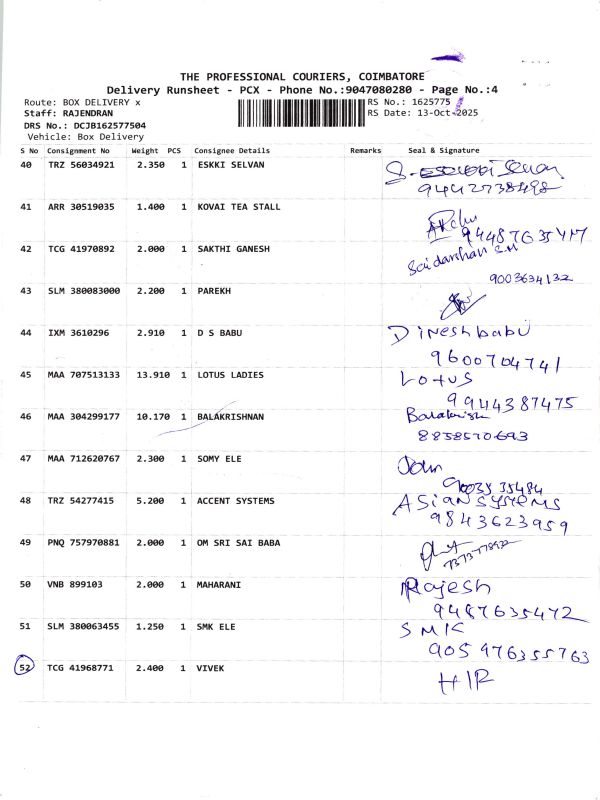 THE PROFESSIONAL COURIERS, COIMBATORE
Delivery Runsheet - PCX - Phone No.:9047080280 - Page No.:4
Route: BOX DELIVERY x RS No.: 1625775
Staff: RAJENDRAN RS Date: 13-Oct-2025
DRS No.: DCJB162577504
Vehicle: Box Delivery
S No Consignment No Weight PCS Consignee Details Remarks Seal & Signature
40 TRZ 56034921 2.350 1 ESKKI SELVAN
9442738498
41 ARR 30519035 1.400 1 KOVAI TEA STALL
42 TCG 41970892 2.000 1 SAKTHI GANESH Saidarshan
9003634132
43 SLM 380083000 2.200 1 PAREKH
44 IXM 3610296 2.910 1 D S BABU Dineshbabu
9600704741
45 MAA 707513133 13.910 1 LOTUS LADIES Lotus
9944387475
46 MAA 304299177 10.170 1 BALAKRISHNAN
8858570693
47 MAA 712620767 2.300 1 SOMY ELE John
48 TRZ 54277415 5.200 1 ACCENT SYSTEMS ASIAN SYSTEMS
9843623959
49 PNQ 757970881 2.000 1 OM SRI SAI BABA
50 VNB 899103 2.000 1 MAHARANI Rajesh
9487635472
51 SLM 380063455 1.250 1 SMK ELE SMK
905976355763
52 TCG 41968771 2.400 1 VIVEK HIR